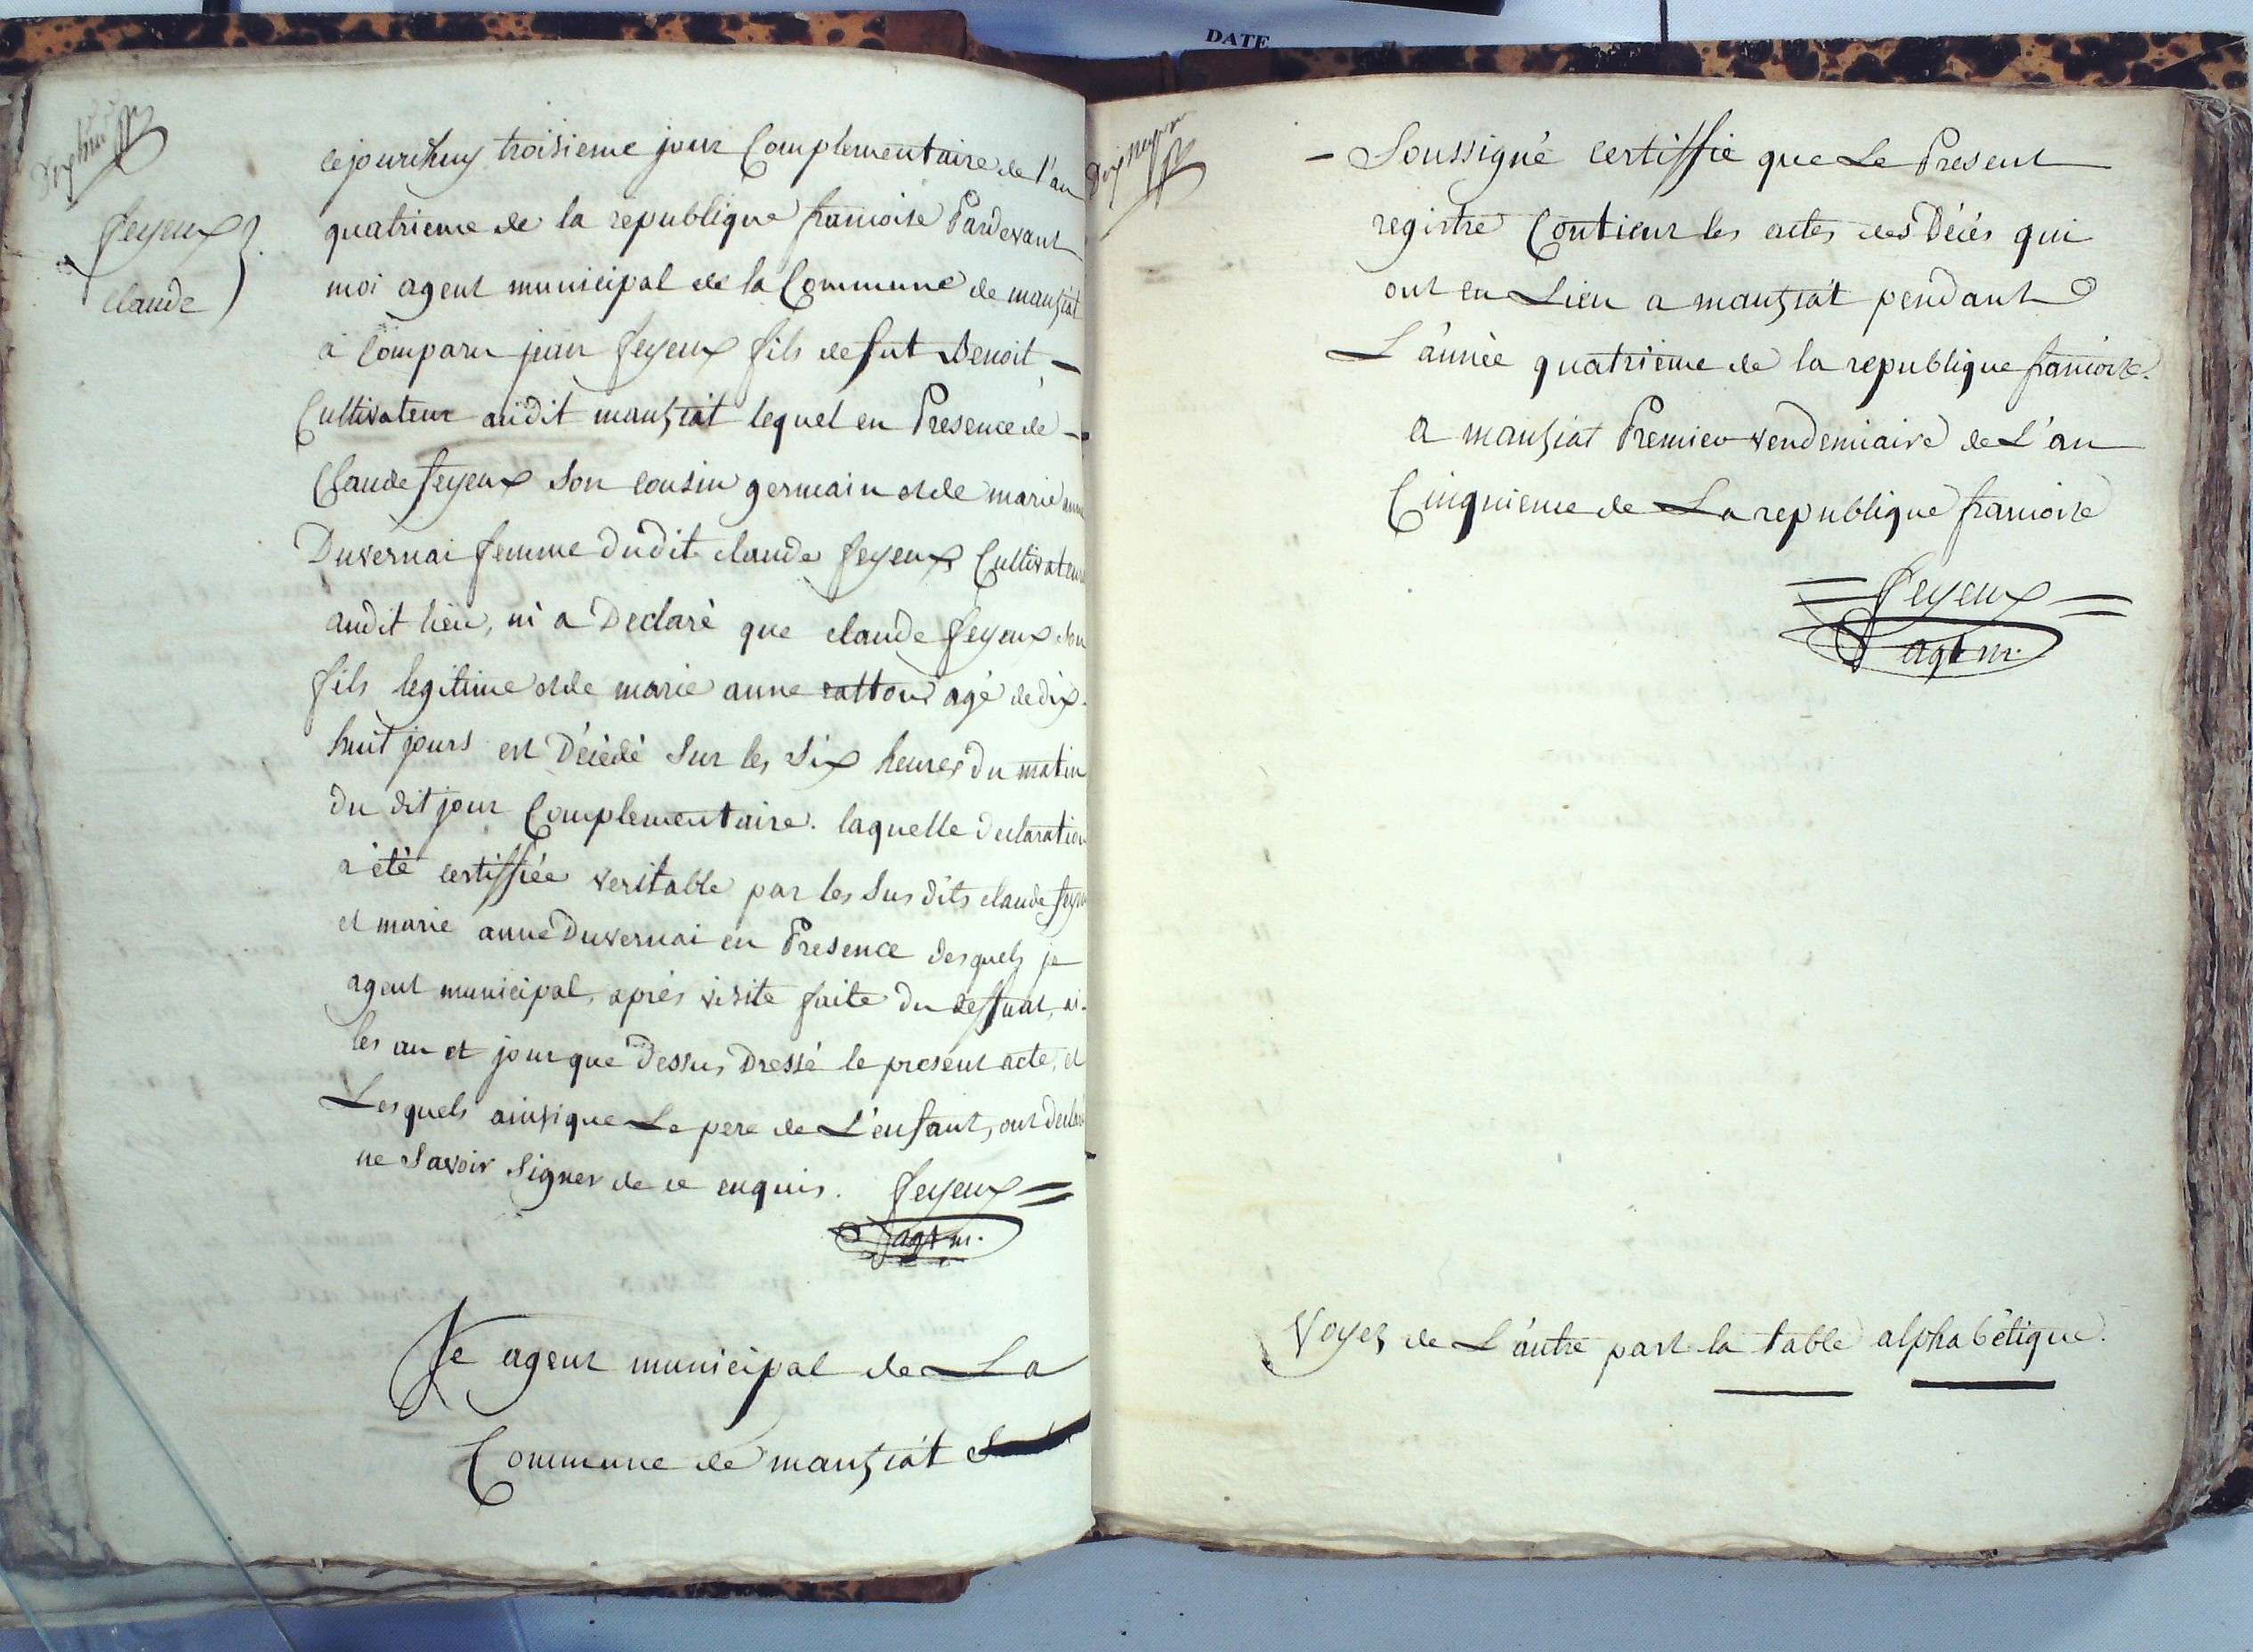 DATE
Dixhuit
feyeux
claude
cejourdhuy troisieme jour Complementaire de l'an
quatrieme de la republique francoise Pardevant
moi agent municipal de la Commune de manziat
a Comparu jean feyeux fils de fut Benoit
Cultivateur audit manziat lequel en Presence de
Claude feyeux son cousin germain et de marie anne
Duvernai femme dudit claude feyeux Cultivateur
audit lieu, m'a Declaré que claude feyeux son
fils legitime et de marie anne age de dix
huit jours est Décédé sur les six heures du matin
du dit jour Complementaire. laquelle declaration
a été certiffiée veritable par les susdits claude feyeux
et marie anne Duvernai en Presence desquels je
agent municipal, aprés visite faite du deffunt, ai
les an et jour que dessus, Dressé le present acte, et
Lesquels ainsi que Le pere de L'enfant, ont declaré
ne savoir signer de ce enquis. feyeux
agt m.
Je agent municipal de La
Commune de manziat
Dix neuf
Soussigné certiffie que Le Present
registre Contient les actes des Décés qui
ont eu Lieu a manziat pendant
L'année quatriéme de la republique francoise.
a manziat Premier vendemiaire de L'an
Cinquieme de La republique francoise
feyeux
agt m.
Voyez de L'autre part la table alphabétique.